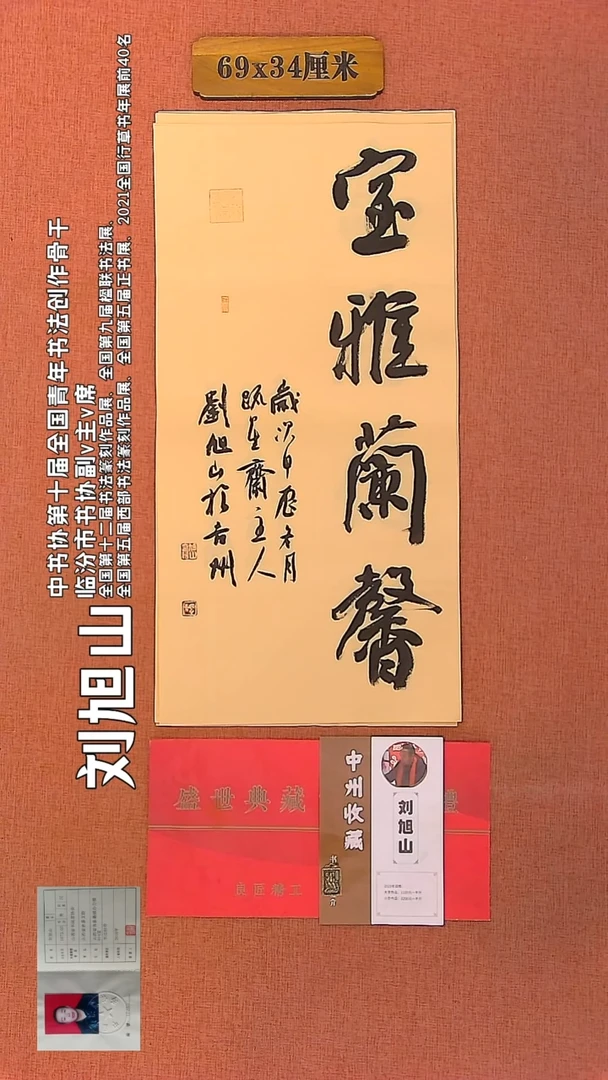 69x34厘米
室雅蘭馨
歲次甲辰冬月
星齋主人
劉旭山於吉州
中书协第十届全国青年书法创作骨干
临汾市书协副v主v席
全国第十二届书法篆刻作品展、全国第九届楹联书法展、
全国第五届西部书法篆刻作品展、全国第五届正书展、2021全国行草书年展前40名
刘旭山
盛世典藏
良匠精工
中州收藏
刘旭山